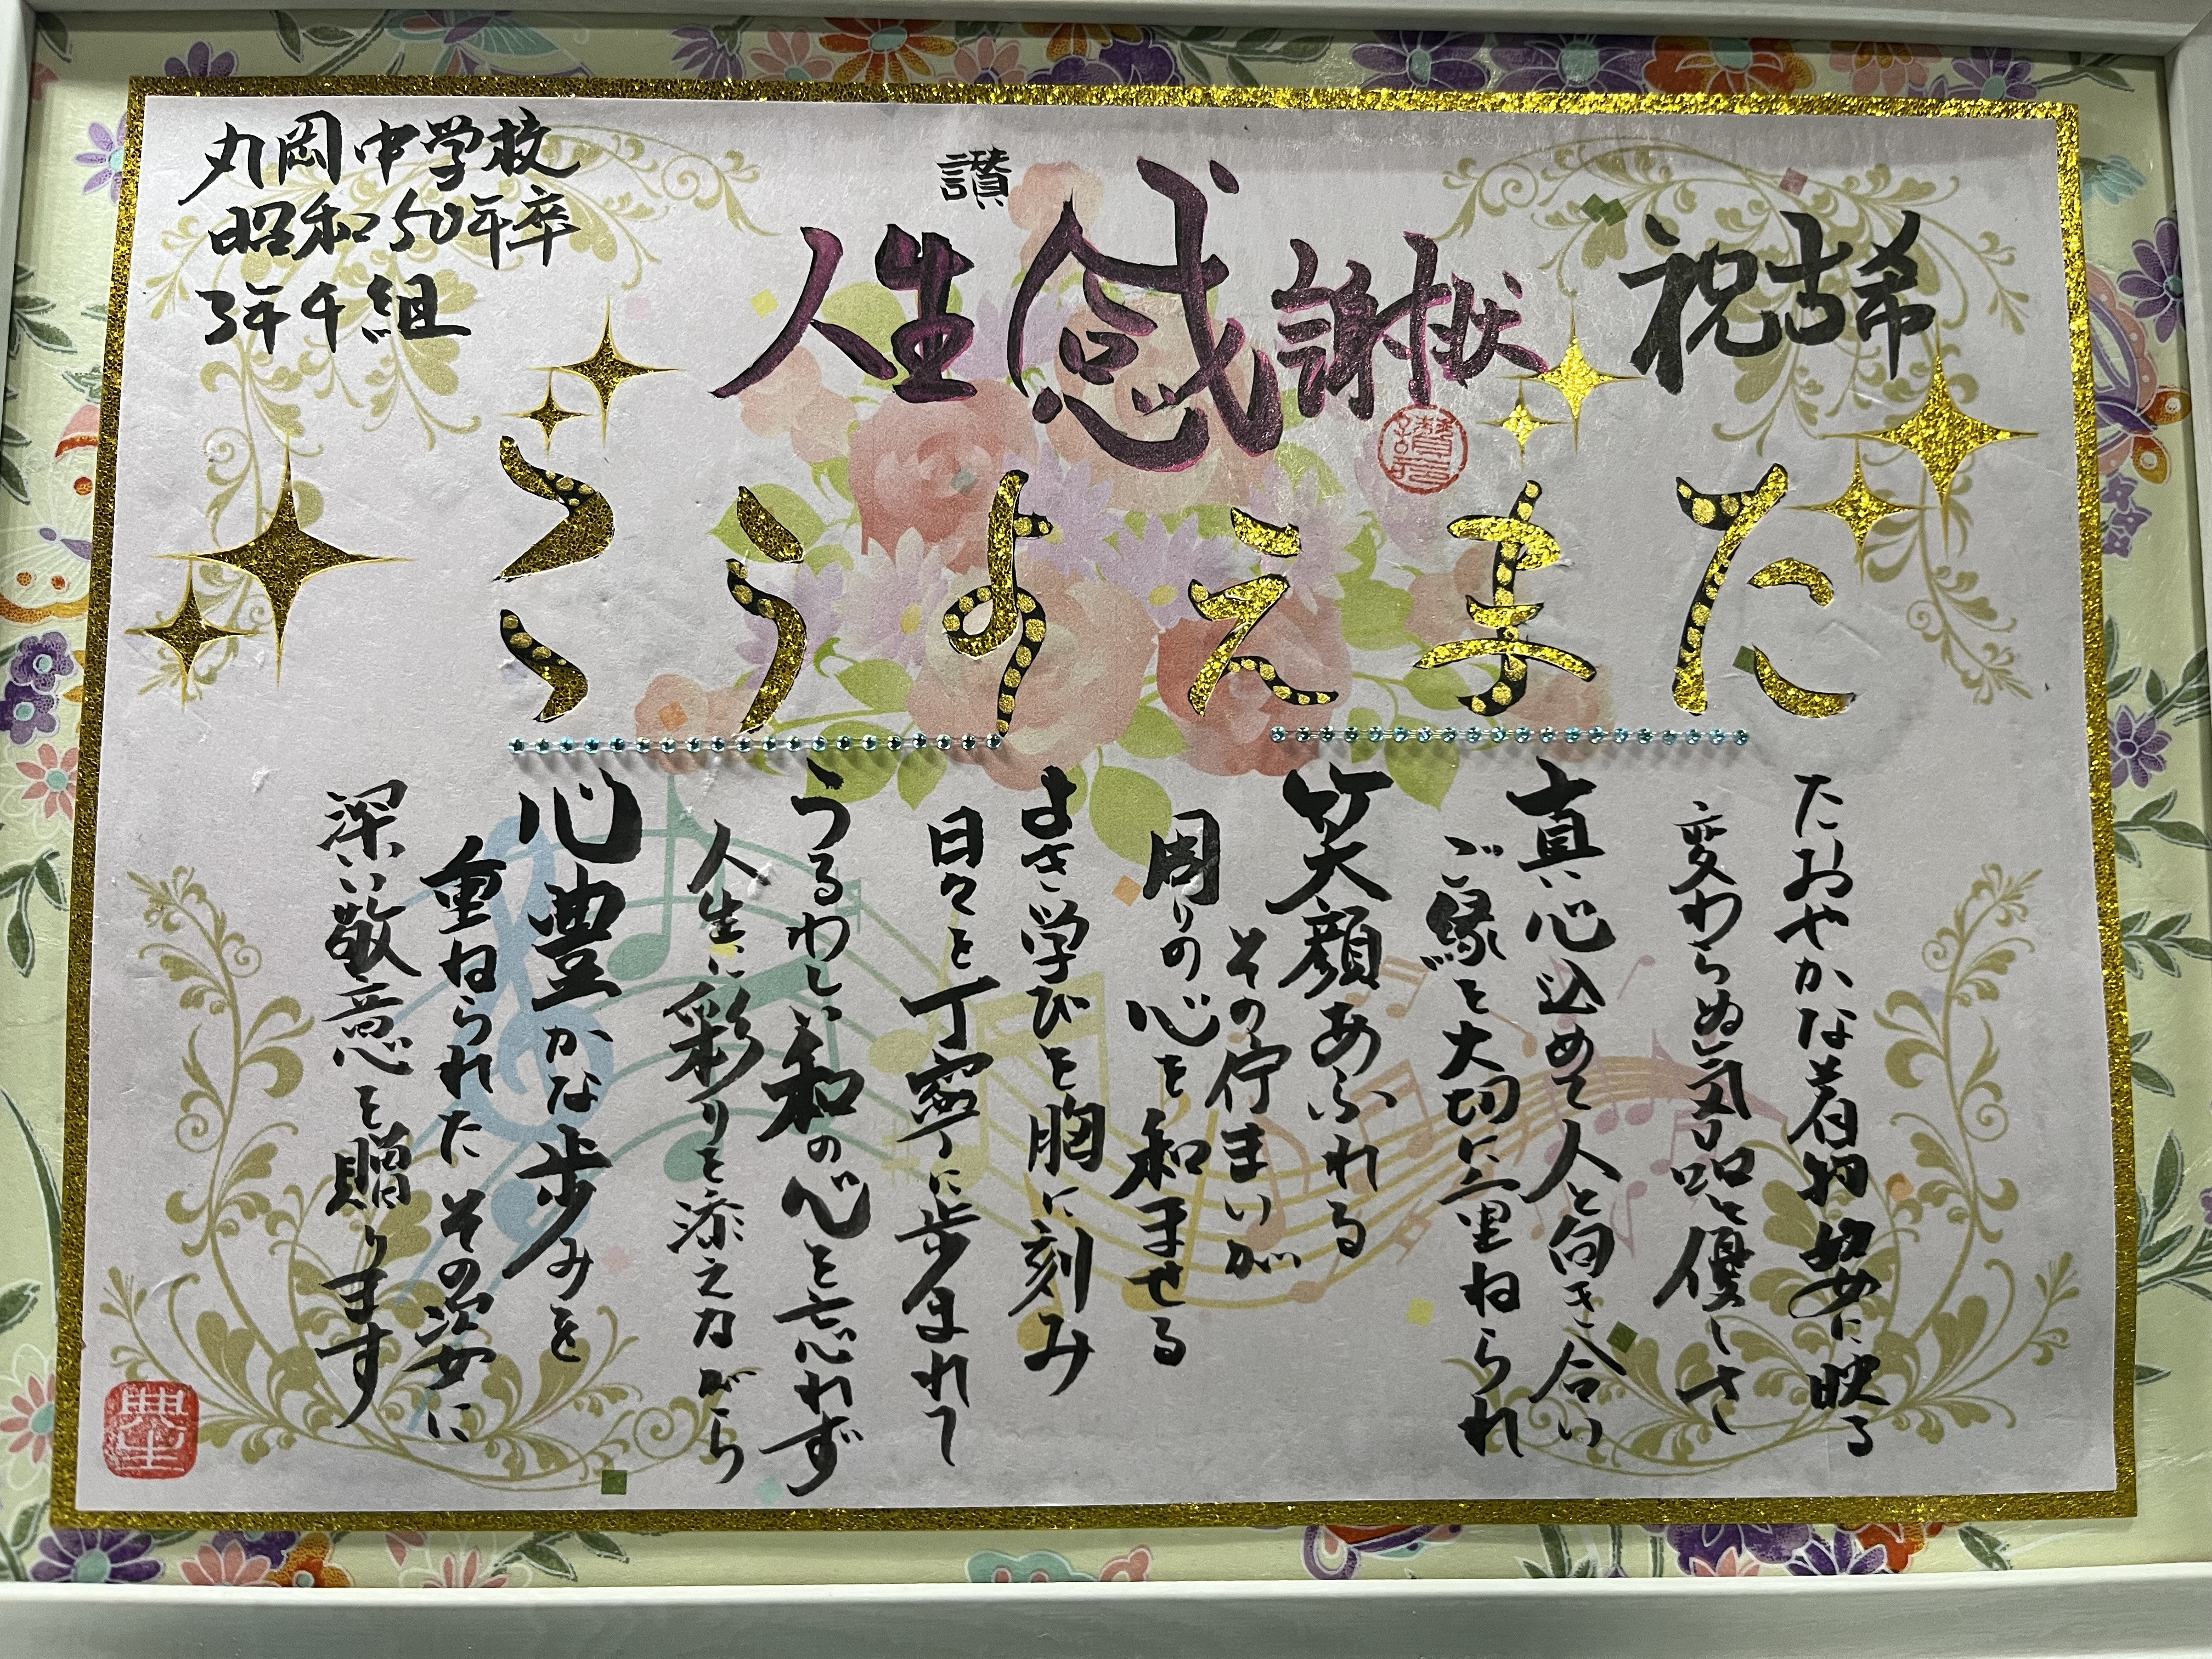 祝古希
讃
人生感謝状
丸岡中学校
昭和50年卒
3年4組
たまえ ようこ
たおやかな着物姿に映る
変わらぬ気品と優しさ
真心込めて人と向き合い
ご縁を大切に重ねられ
笑顔あふれる
その佇まいが
周りの心を和ませる
よき学びを胸に刻み
日々を丁寧に歩まれて
うるわしい和の心を忘れず
人生に彩りを添えながら
心豊かな歩みを
重ねられたその姿に
深い敬意を贈ります
典生